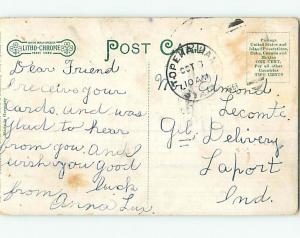 LITHO-CHROME
POST C
TOPEKA, KAN.
OCT
10 AM
Postage
United States
and Island Possessions,
Cuba, Canada and
Mexico
ONE CENT.
For all other
Countries
TWO CENTS
Dear Friend
I receive your
cards, and was
glad to hear
from you. and
wish you good
from luck
Anna Lux
Mr Edmond
Lecomte.
Gil. Delivery
Laport
Ind.